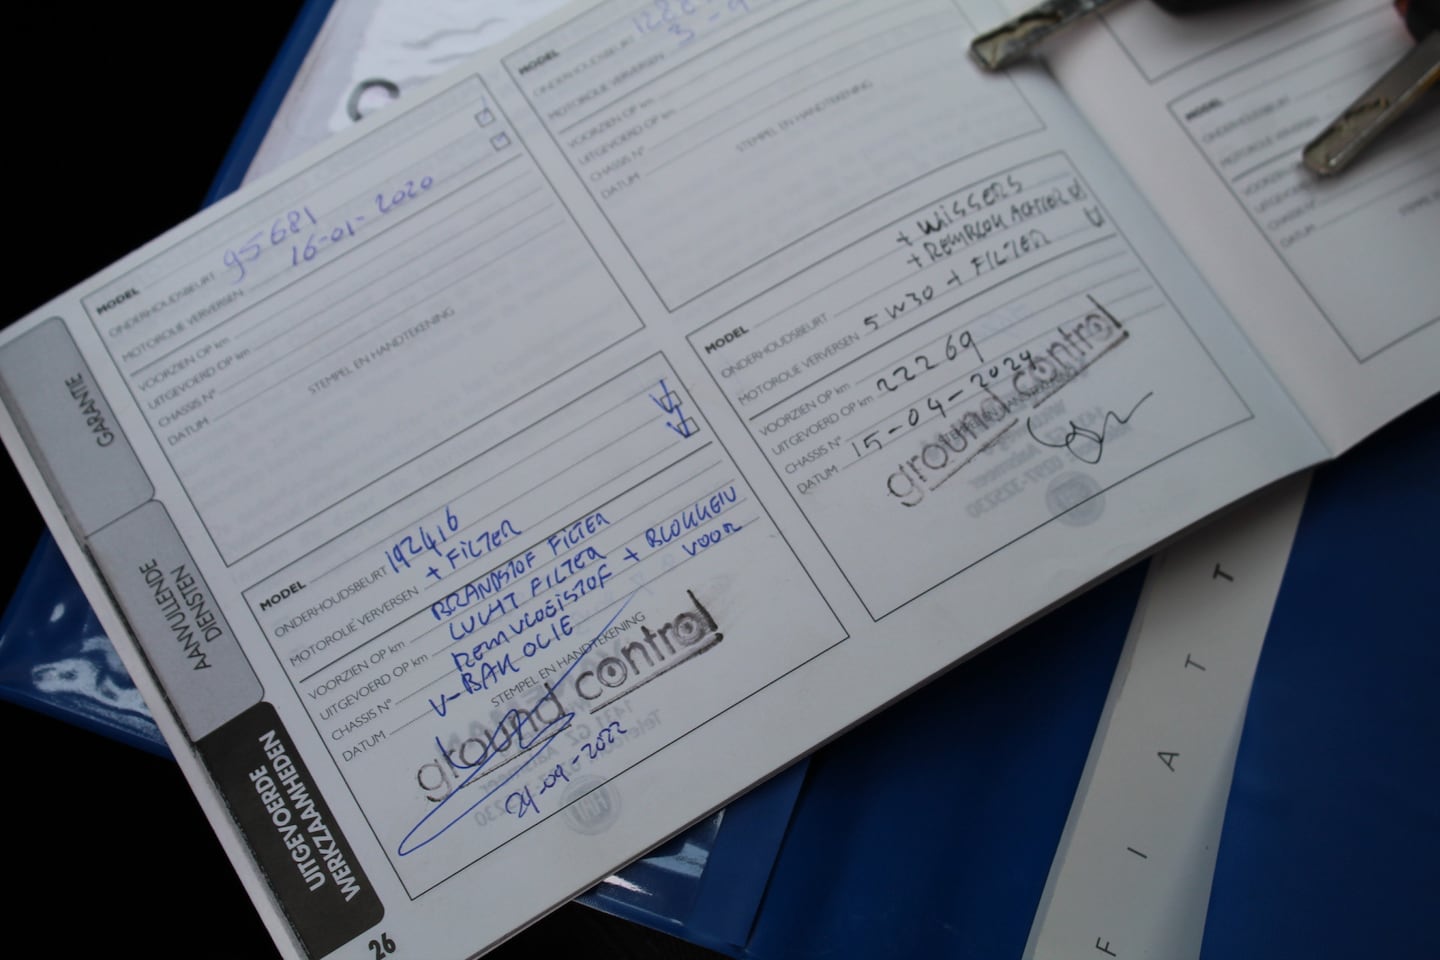 GARANTIE
AANVULLENDE
DIENSTEN
UITGEVOERDE
WERKZAAMHEDEN
26
MODEL
ONDERHOUDSBEURT 95681
MOTOROLIE VERVERSEN 16-01-2020
VOORZIEN OP km
UITGEVOERD OP km
CHASSIS N°
DATUM
STEMPEL EN HANDTEKENING
MODEL
ONDERHOUDSBEURT
MOTOROLIE VERVERSEN
VOORZIEN OP km
UITGEVOERD OP km
CHASSIS N°
DATUM
STEMPEL EN HANDTEKENING
MODEL
ONDERHOUDSBEURT 192416
MOTOROLIE VERVERSEN + FILTER
VOORZIEN OP km BRANDSTOF FILTER
UITGEVOERD OP km LUCHT FILTER
CHASSIS N° REMVLOEISTOF + BLOKKEN
VOOR
DATUM V-BAK OLIE
STEMPEL EN HANDTEKENING
ground control
24-09-2022
MODEL
+ WISSERS
ONDERHOUDSBEURT + REMBLOK ACHTER
MOTOROLIE VERVERSEN 5W30 + FILTER
VOORZIEN OP km
UITGEVOERD OP km 22269
CHASSIS N°
DATUM 15-04-2024
ground control
MODEL
DATUM
FIATT